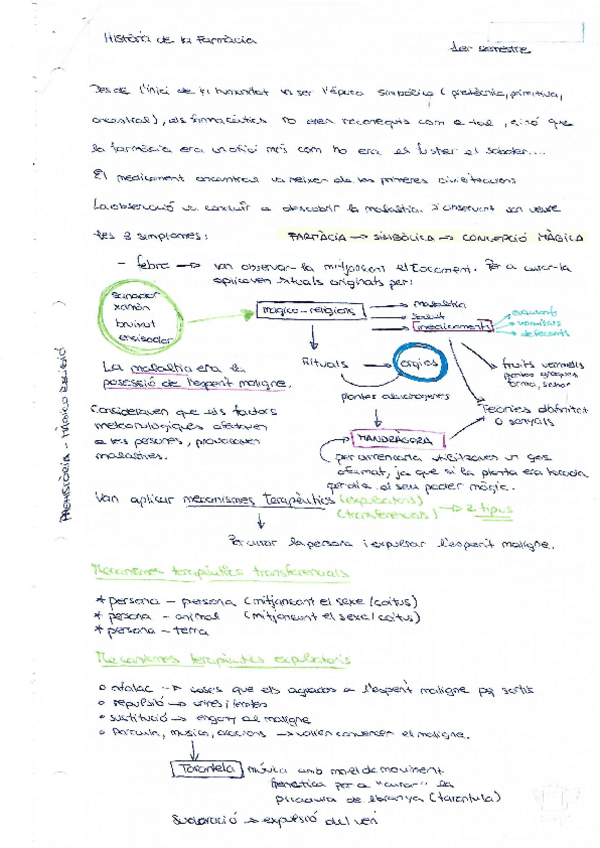 Història de la Farmàcia
1er semestre
Desde l'inici de la humanitat va ser l'època simbòlica (pretècnica, primitiva,
ancestral), els farmacèutics no eren reconeguts com a tal, sinó que
la farmàcia era un ofici més com ho era el fuster el sabater....
El medicament ancestral va neixer de les primeres civilitzacions
La observació va conduir a descubrir la malaltia. S'observant van veure
les 3 símptomes:
FARMÀCIA → SIMBÒLICA → CONCEPCIÓ MÀGICA
- febre → van observar-la mitjançant el tocament. Per a curar-la
aplicaven rituals originats per:
sanador
xamàn
bruixot
encisador
màgico-religiós
Malaltia
Salut
medicaments
vomitius
Rituals
orgies
fruits vermells
forma, sabor
La malaltia era la
possessió de l'esperit maligne.
plantes alucinògenes
Teories d'afinitat
o senyals
Consideraven que els factors
meteorològiques afectaven
a les persones, provocaven
malalties.
MANDRÀGORA
per arrencarla utilitzaven un gos
afamat, ja que si la planta era tocada
perdia el seu poder màgic.
PREHISTÒRIA - MÀGICO RELIGIÓ
Van aplicar mecanismes terapèutics (expulsatoris)
(transferencials) → 2 tipus
Per curar la persona i expulsar l'esperit maligne.
Mecanismes terapèutics transferencials
* persona - persona (mitjançant el sexe/coitus)
* persona - animal (mitjançant el sexe/coitus)
* persona - terra
Mecanismes terapèutics expulsatoris
o afalac → coses que els agrada a l'esperit maligne pq sortis
o repulsió → olors i fentes
o sustitució → engany al maligne
o paraula, musica, oracions → volien convencer el maligne.
Tarantela
música amb molt de moviment
frenètica per a "curar" la
picadura de l'aranya (tarantula)
Sudoració → expulsió del verí